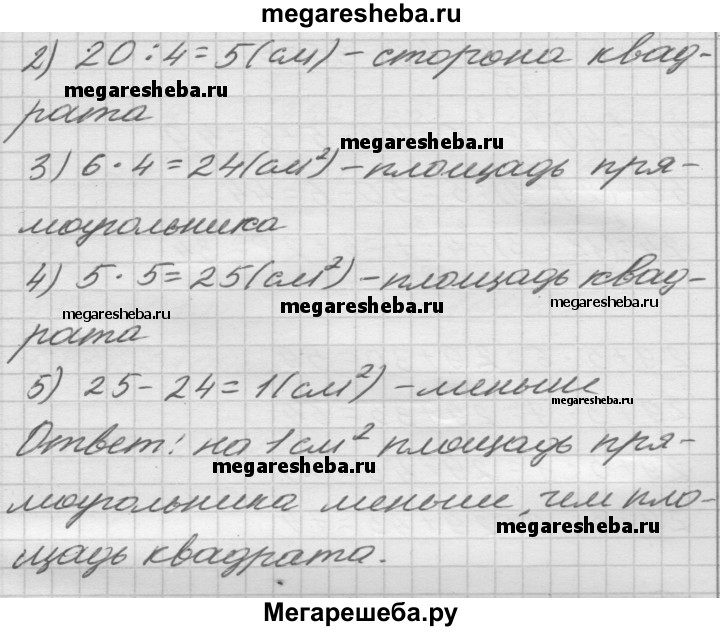 megaresheba.ru
2) 20 : 4 = 5 (см) – сторона квад-
megaresheba.ru
рата
megaresheba.ru
3) 6 · 4 = 24 (см²) – площадь пря-
моугольника
4) 5 · 5 = 25 (см²) – площадь квад-
megaresheba.ru megaresheba.ru megaresheba.ru
рата
5) 25 – 24 = 1 (см²) – меньше
megaresheba.ru
Ответ: на 1 см² площадь пря-
megaresheba.ru
моугольника меньше, чем пло-
megaresheba.ru
щадь квадрата.
Мегарешеба.ру